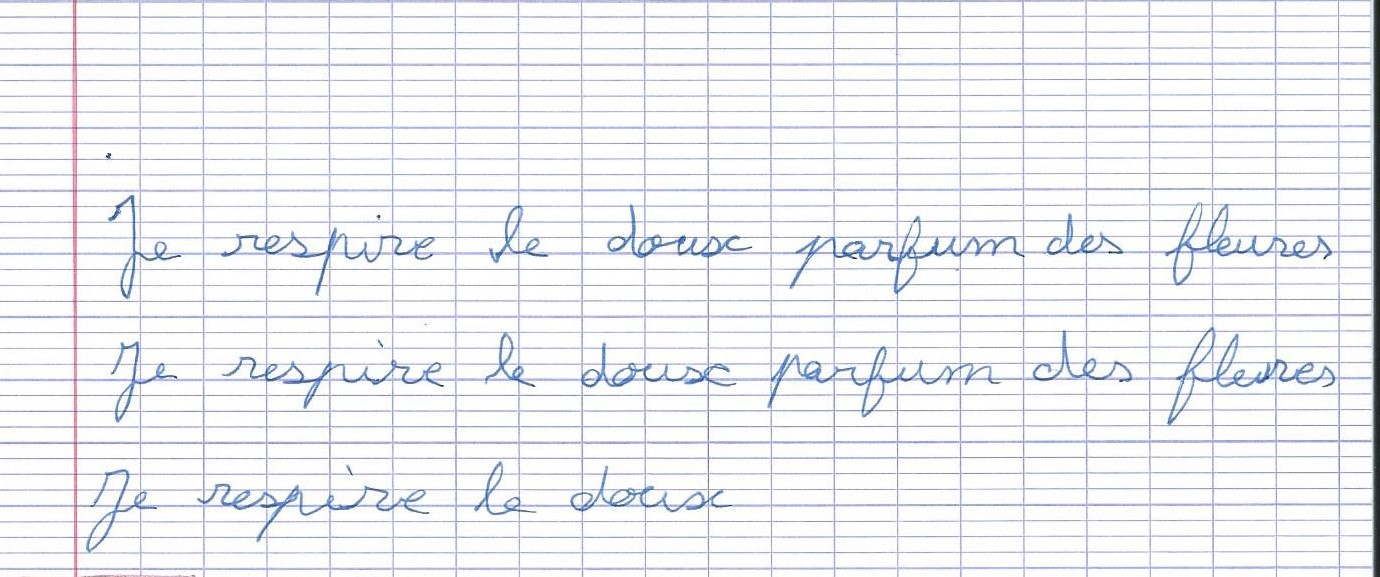 Je respire le doux parfum des fleures
Je respire le doux parfum des fleures
Je respire le doux